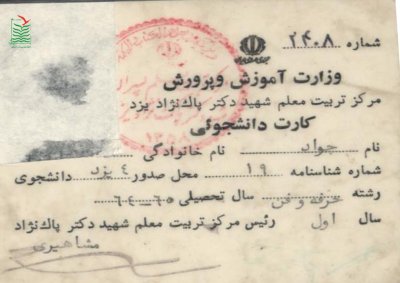 شماره ۲۴۰۸
وزارت آموزش وپرورش
مرکز تربیت معلم شهید دکتر پاک‌نژاد یزد
کارت دانشجوئی
نام جواد نام خانوادگی
شماره شناسنامه ۱۹ محل صدور ۴ یزد دانشجوی
رشته حرفه و فن سال تحصیلی ۶۵-۶۴
سال اول رئیس مرکز تربیت معلم شهید دکتر پاک‌نژاد
مشاهیری